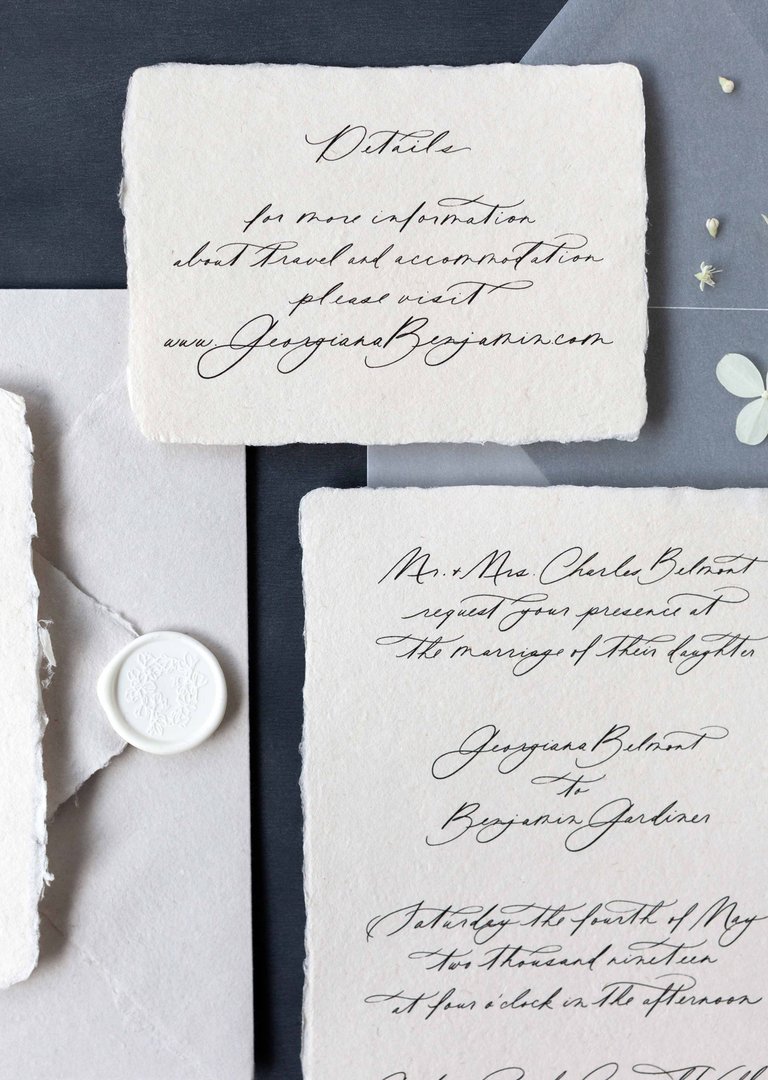 Details
for more information
about travel and accommodation
please visit
www.GeorgianaBenjamin.com
Mr. + Mrs. Charles Belmont
request your presence at
the marriage of their daughter
Georgiana Belmont
to
Benjamin Gardiner
Saturday the fourth of May
two thousand nineteen
at four o'clock in the afternoon